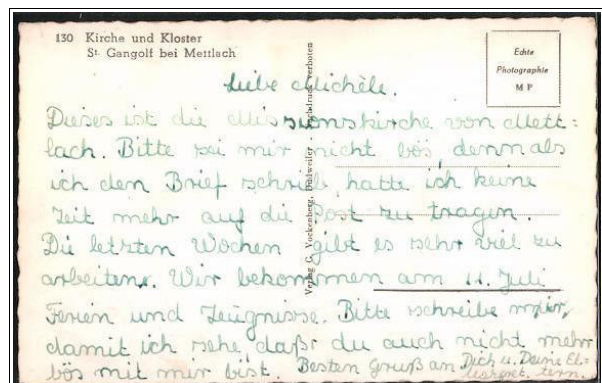 130 Kirche und Kloster
St. Gangolf bei Mettlach
Echte
Photographie
M P
Verlag C. Vockenberg, Dudweiler - Nachdruck verboten
Liebe Michèle.
Dieses ist die Missionskirche von Mett=
lach. Bitte sei mir nicht bös, denn als
ich den Brief schrieb, hatte ich keine
Zeit mehr auf die Post zu tragen.
Die letzten Wochen gibt es sehr viel zu
arbeiten. Wir bekommen am 11. Juli
Ferien und Zeugnisse. Bitte schreibe mir,
damit ich sehe, daß du auch nicht mehr
bös mit mir bist. Besten Gruß an Dich u. Deine El-
tern.